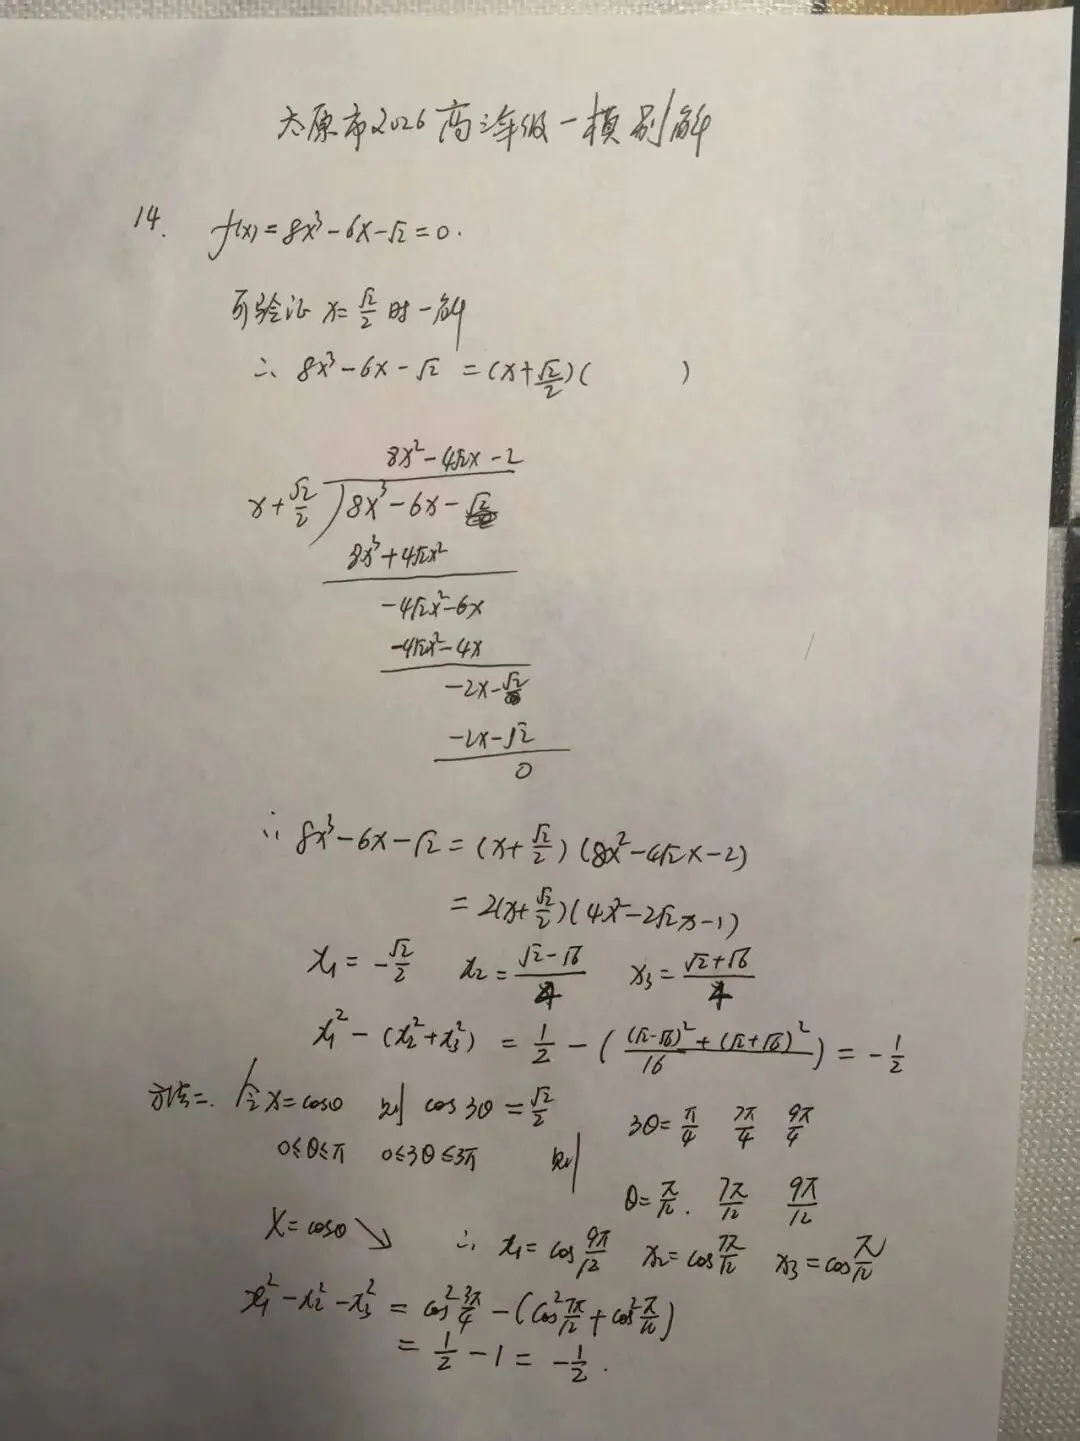 太原市2026高三年级一模别解
14. f(x)=8x³-6x-√2=0.
可验证 x=√2/2 时一解
∴ 8x³-6x-√2 =(x+√2/2)( )
8x²-4√2x-2
x+√2/2 ) 8x³-6x-√2
8x³+4√2x²
-4√2x²-6x
-4√2x²-4x
-2x-√2
-2x-√2
0
∴ 8x³-6x-√2=(x+√2/2)(8x²-4√2x-2)
=2(x+√2/2)(4x²-2√2x-1)
x₁=-√2/2 x₂=(√2-√6)/4 x₃=(√2+√6)/4
x₁²-(x₂²+x₃²) = 1/2-((√2-√6)²+(√2+√6)²/16)=-1/2
方法二. 令x=cosθ 则 cos3θ=√2/2 3θ=π/4 7π/4 9π/4
0≤θ≤π 0≤3θ≤3π 则 θ=π/12. 7π/12 9π/12
x=cosθ↘ ∴ x₁=cos9π/12 x₂=cos7π/12 x₃=cosπ/12
x₁²-x₂²-x₃²=cos²3π/4-(cos²7π/12+cos²π/12)
=1/2-1=-1/2.